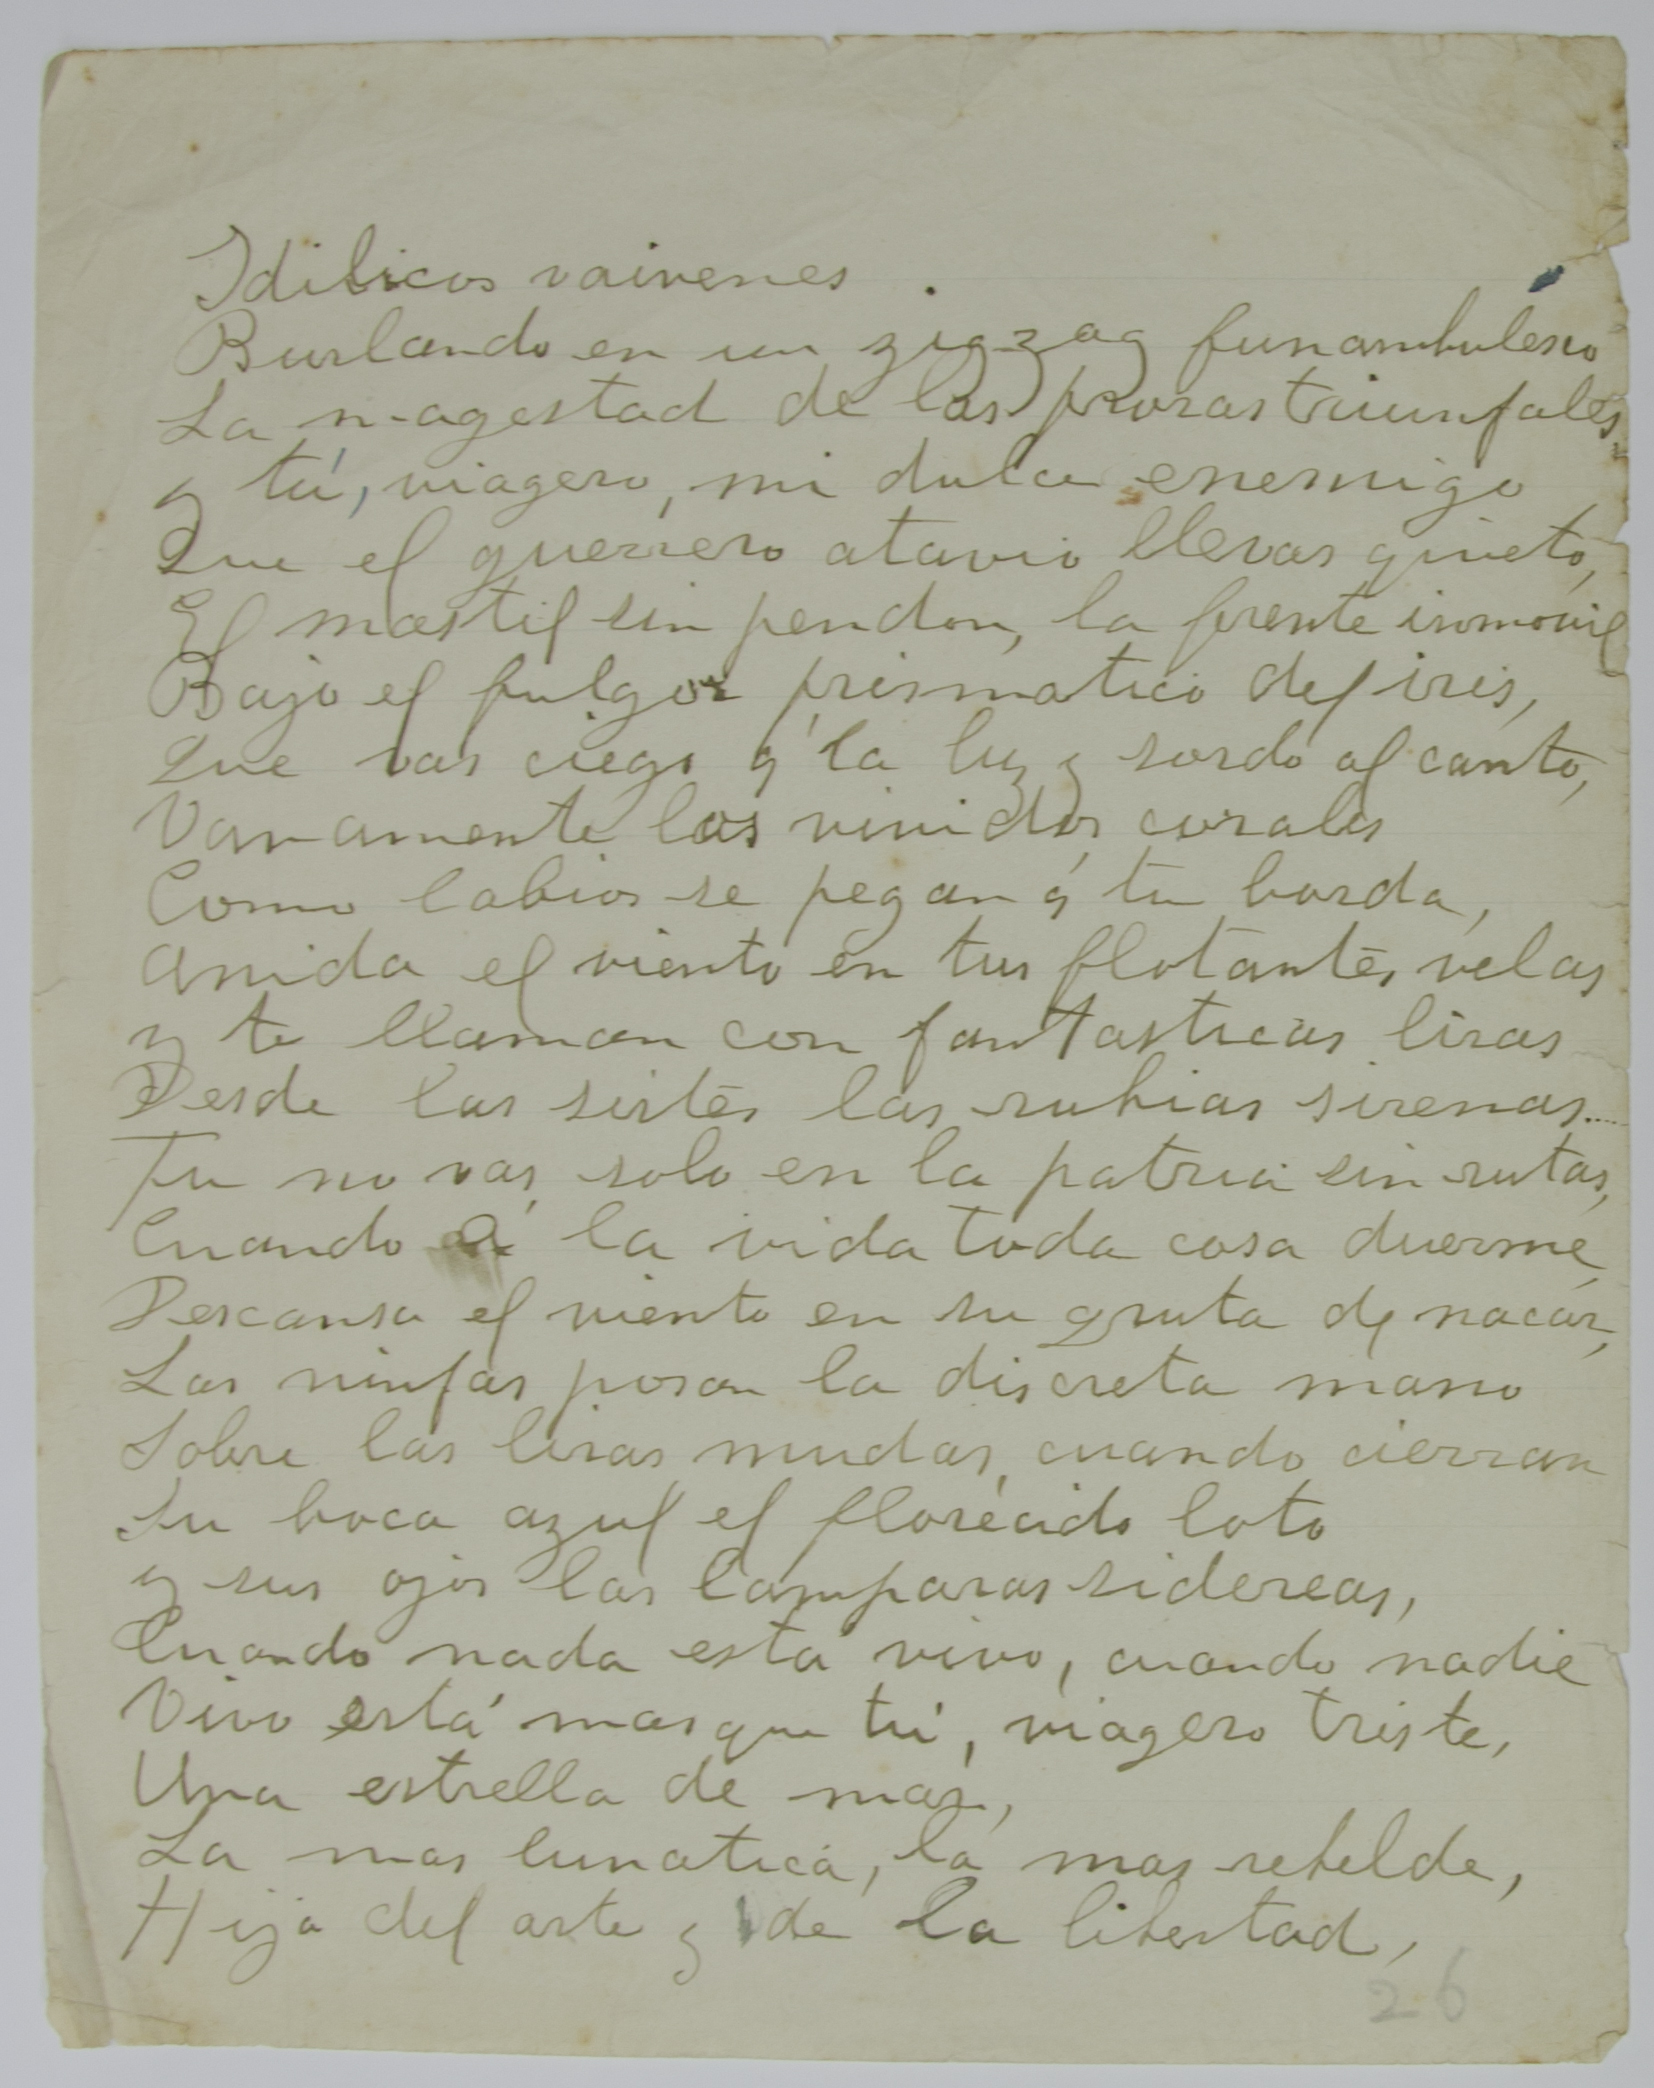 Idilicos vaivenes .
Burlando en un zig-zag funambulesco
La magestad de las proras triunfales,
y tú, viagero, mi dulce enemigo
Que el guerrero atavio llevas quieto,
El mastil sin pendon, la frente inmovil
Bajo el fulgor prismatico del iris,
Que vas ciego á la luz y sordo al canto,
Vanamente los vividos corales
Como labios se pegan á tu borda,
Anida el viento en tus flotantes velas
y te llaman con fantasticas liras
Desde las sirtes las rubias sirenas....
Tu no vas solo en la patria sin rutas,
Cuando á la vida toda cosa duerme,
Descansa el viento en su gruta de nacar,
Las ninfas posan la discreta mano
Sobre las liras mudas, cuando cierran
Su boca azul el florecido loto
y sus ojos las lamparas sidereas,
Cuando nada está vivo, cuando nadie
Vivo está mas que tú, viagero triste,
Una estrella de mar,
La mas lunatica, la mas rebelde,
Hija del arte y de la libertad,
26